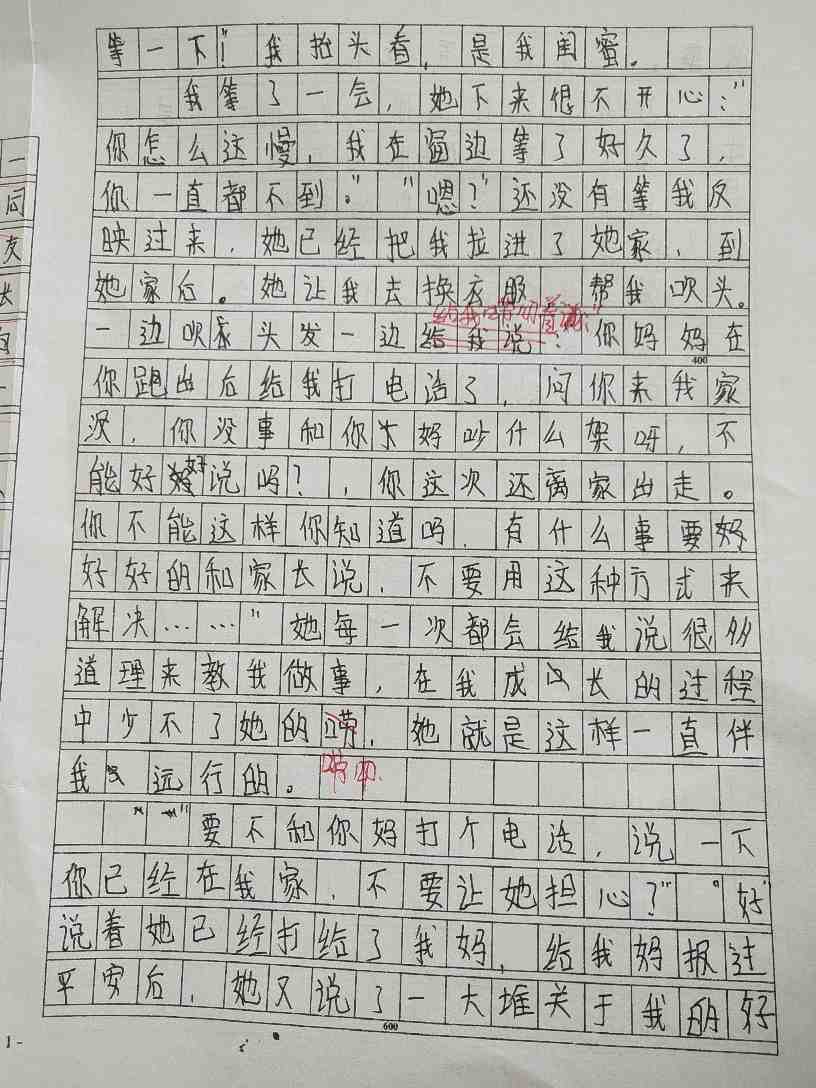 等一下!我抬头看,是我闺蜜。
我等了一会,她下来很不开心:"
你怎么这慢,我在窗边等了好久了,
你一直都不到。""嗯?"还没有等我反
映过来,她已经把我拉进了她家,到
她家后。她让我去换衣服 帮我吹头。
给我"唠叨着"
一边吹头发一边给我说:你妈妈在
400
你跑出后给我打电话了,问你来我家
没,你没事和你妈吵什么架呀,不
能好好说吗?,你这次还离家出走。
你不能这样你知道吗,有什么事要好
好好的和家长说,不要用这种方式来
解决……"她每一次都会给我说很多
道理来教我做事,在我成长的过程
中少不了她的唠,她就是这样一直伴
我远行的。
唠叨.
"要不和你妈打个电话,说一下
你已经在我家,不要让她担心?""好"
说着她已经打给了我妈,给我妈报过
平安后,她又说了一大堆关于我的好
600
1-
一
同
友
长